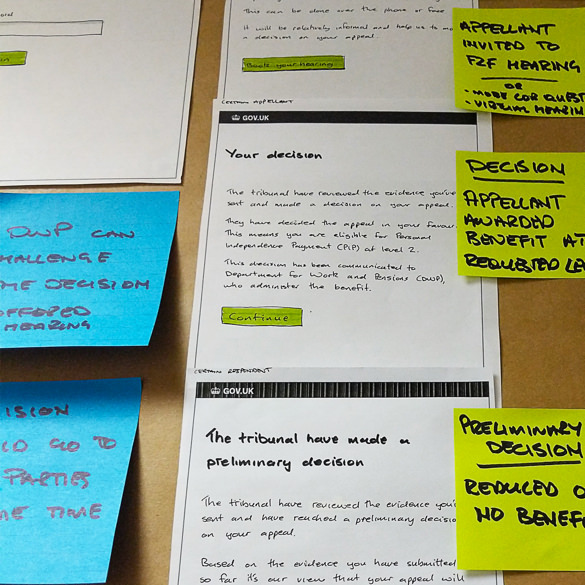 This can be done over the phone or face
It will be relatively informal and help us to
a decision on your appeal.
Book your hearing
APPELLANT
INVITED TO
F2F HEARING
OR
• MORE COR QUEST
• VIRTUAL HEARIN
CERTAIN APPELLANT
GOV.UK
Your decision
The tribunal have reviewed the evidence you've
sent and made a decision on your appeal.
They have decided the appeal in your favour.
This means you are eligible for Personal
Independence Payment (PiP) at level 2.
This decision has been communicated to
Department for Work and Pensions (DWP),
who administer the benefit.
Continue
DECISION
APPELLANT
AWARDED
BENEFIT AT
REQUESTED LE
DWP CAN
HALLENGE
ME DECISION
OFFERED
HEARING
CERTAIN RESPONDENT
GOV.UK
The tribunal have made a
preliminary decision
The tribunal have reviewed the evidence you'
sent and have reached a preliminary decisio
on your appeal.
Based on the evidence you have submitted
so far it's our view that your appeal will
PRELIMINARY
DECISION
REDUCED O
NO BENEF
ISION
LD GO TO
PARTIES
ME TIME